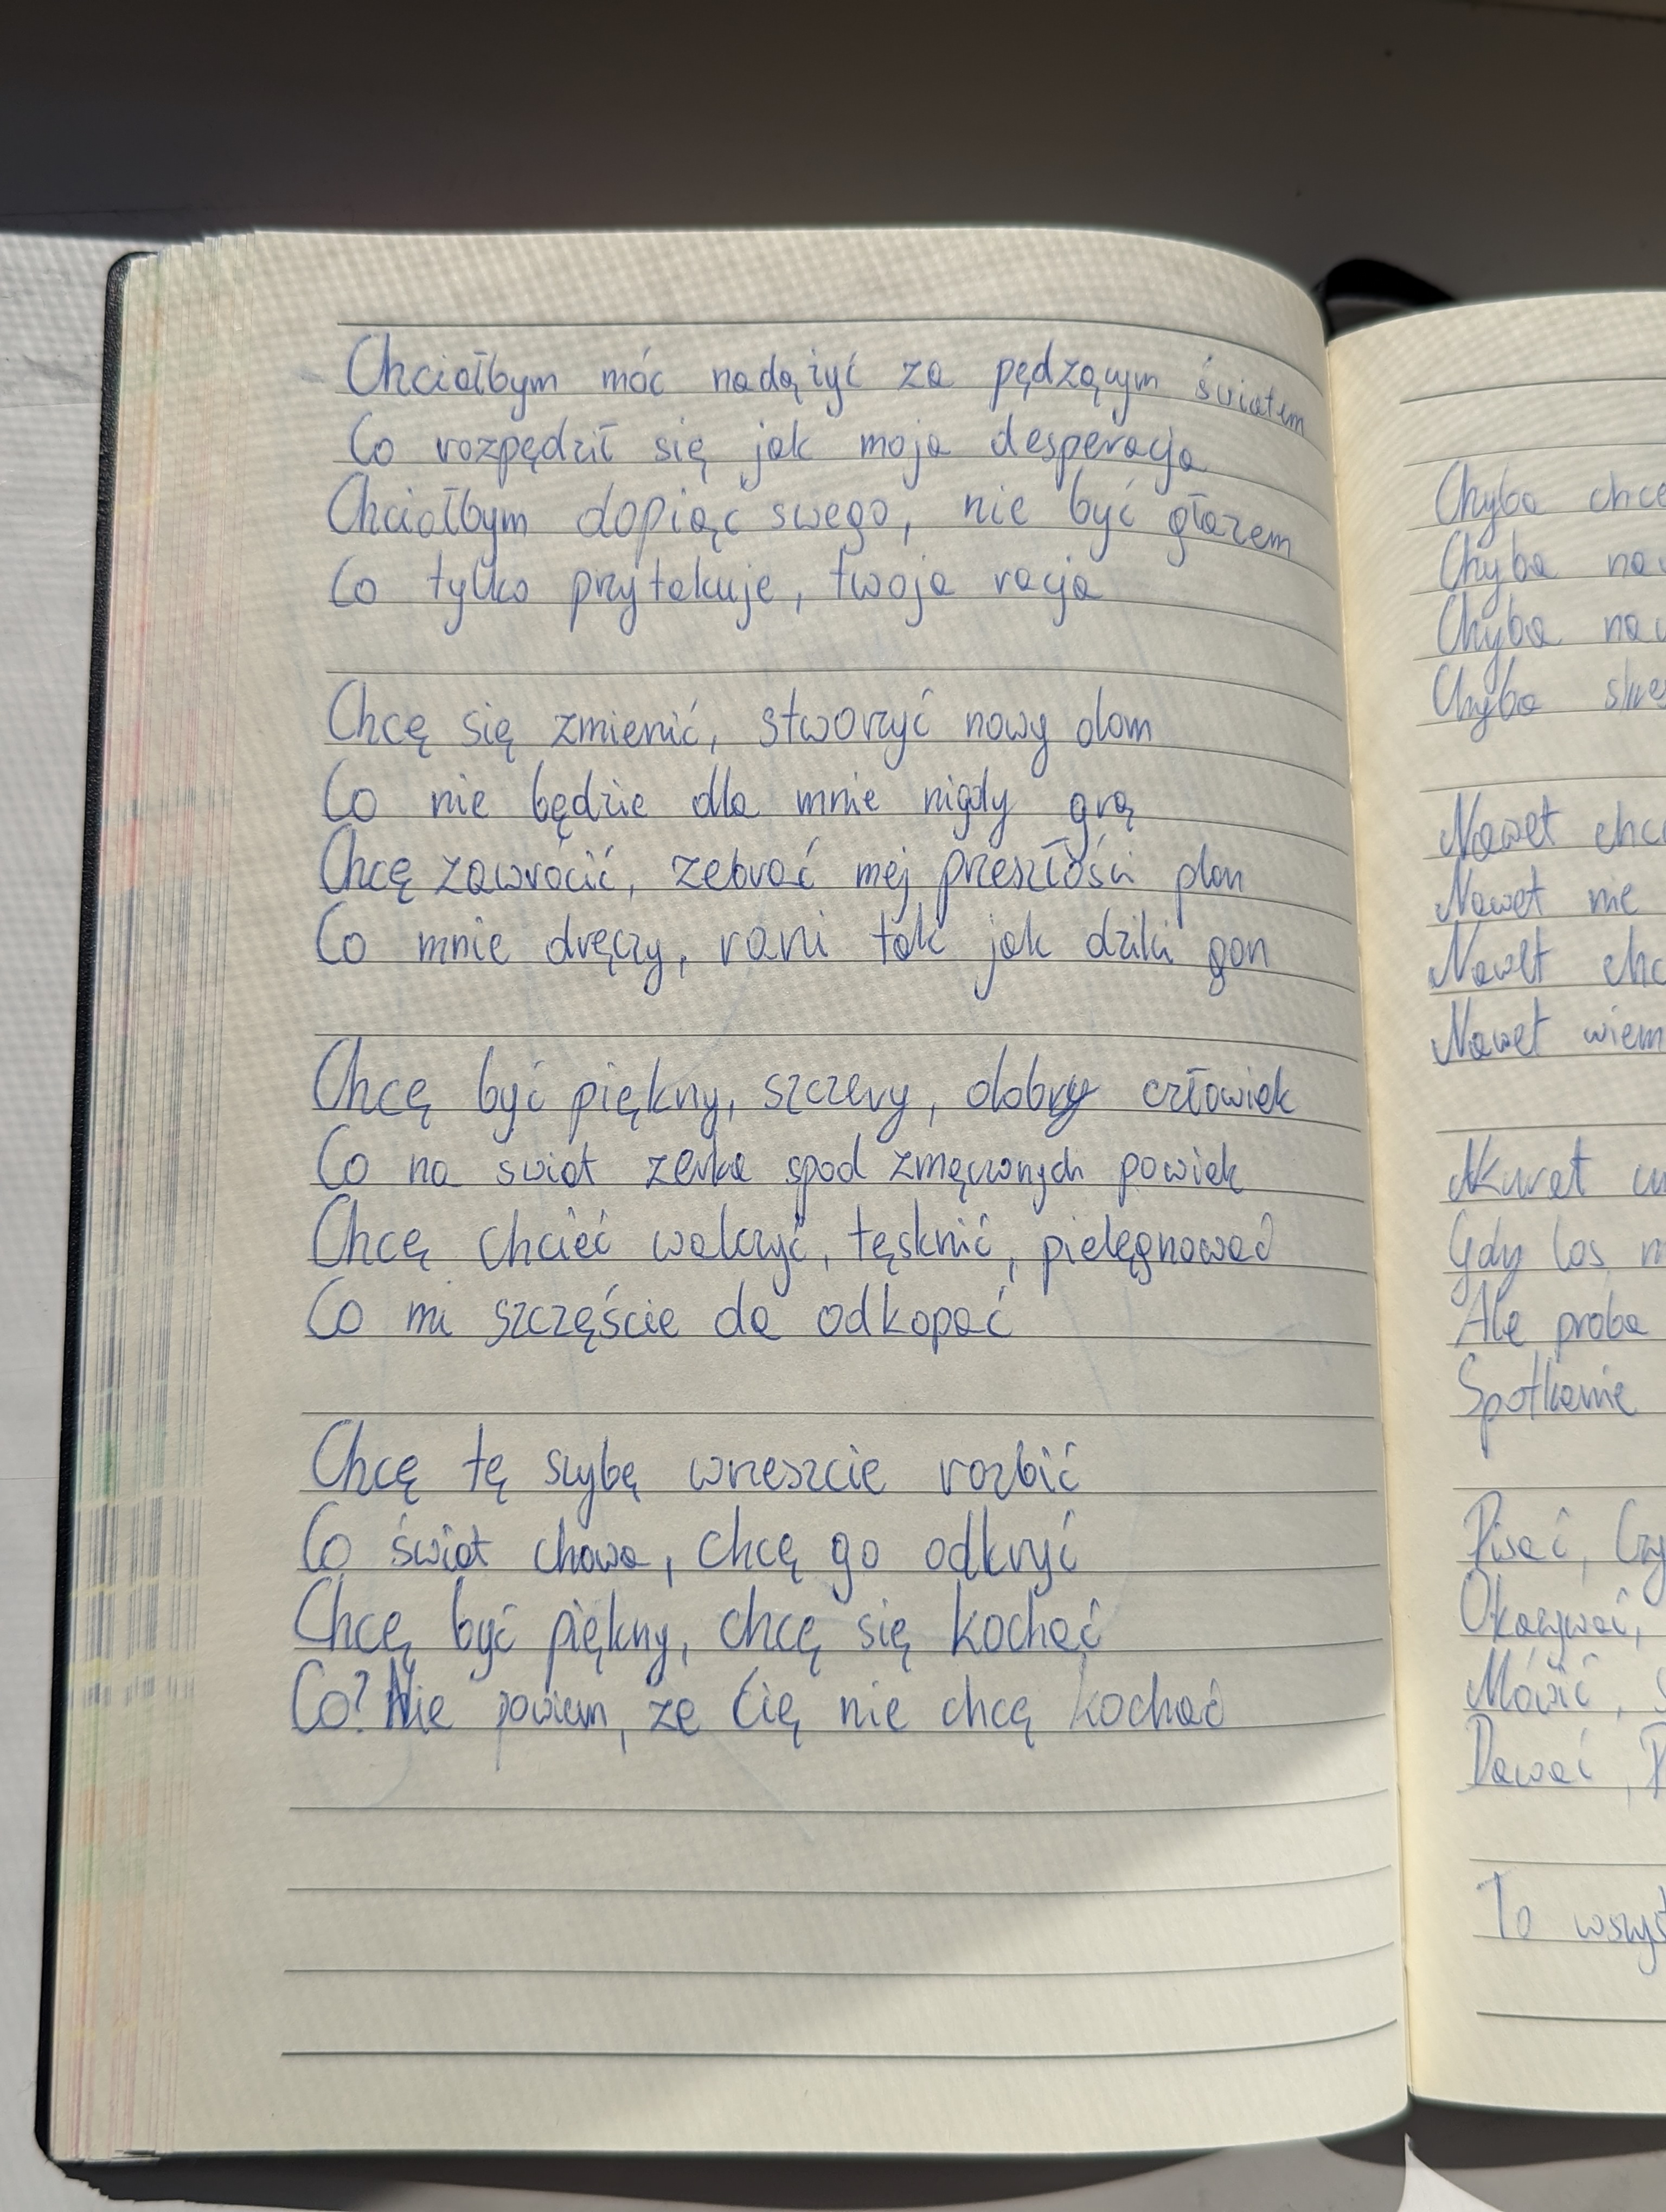 Chciałbym móc nadążyć za pędzącym światem
Co rozpędził się jak moja desperacja
Chciałbym dopiąć swego, nie być głazem
Co tylko przytakuje, twoja racja
Chcę się zmienić, stworzyć nowy dom
Co nie będzie dla mnie nigdy grą
Chcę zawrócić, zebrać mej przeszłości plon
Co mnie dręczy, rani tak jak dziki gon
Chcę być piękny, szczery, dobry człowiek
Co na świat zerka spod zmęczonych powiek
Chcę chcieć walczyć, tęsknić, pielęgnować
Co mi szczęście da odkopać
Chcę tę szybę wreszcie rozbić
Co świat chowa, chcę go odkryć
Chcę być piękny, chcę się kochać
Co? Nie powiem, że Cię nie chcę kochać
Chyba chcę
Chyba
Chyba
Chyba
Nawet
Nawet nie
Nawet
Nawet wiem
Akurat
Gdy los
Ale próba
Spotkanie
Pisać,
Okazywać,
Mówić,
Dawać,
To